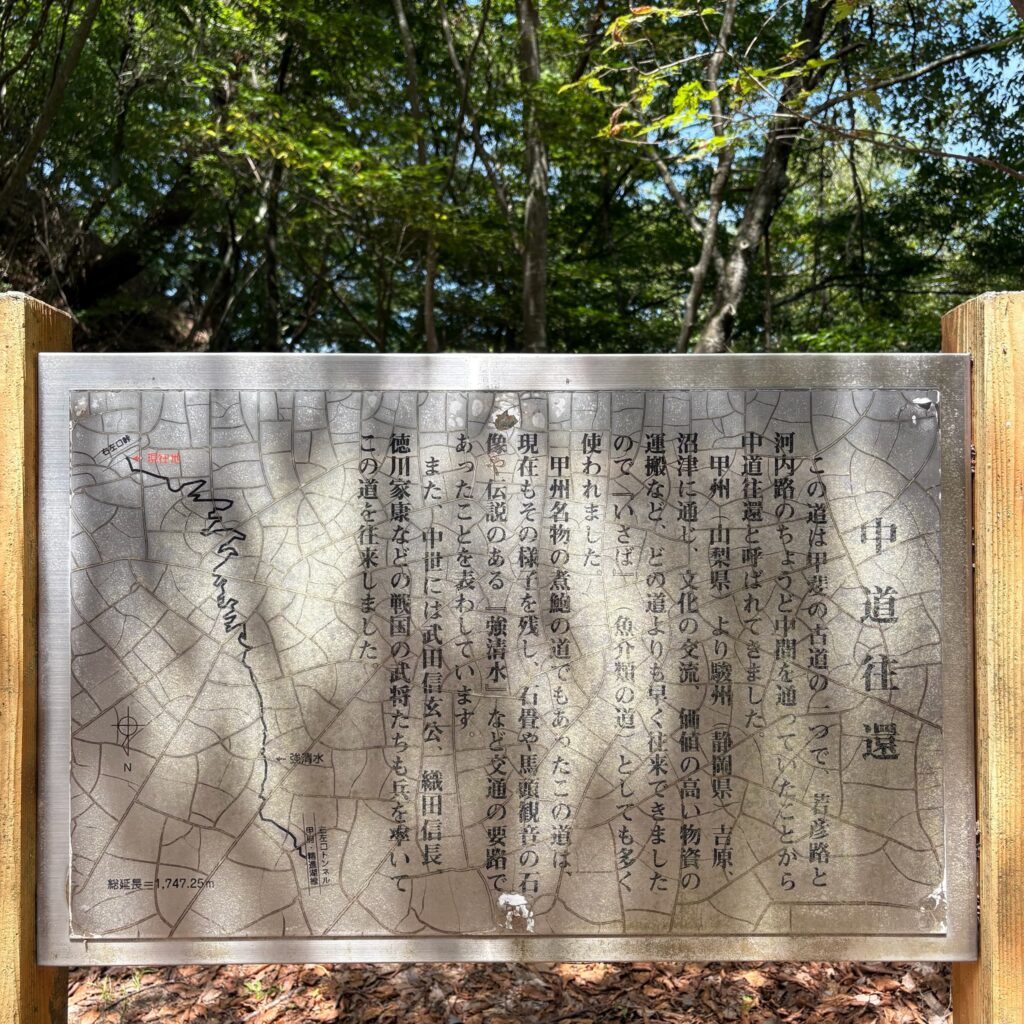 中道往還
この道は甲斐の古道の一つで、若彦路と
河内路のちょうど中間を通っていたことから
中道往還と呼ばれてきました
甲州 山梨県 より駿州（静岡県 吉原、
沼津に通じ、文化の交流、価値の高い物資の
運搬など、どの道よりも早く往来できました
ので「いさば」（魚介類の道）としても多く
使われました
甲州名物の煮鮑の道でもあったこの道は、
現在もその様子を残し、石畳や馬頭観音の石
像や伝説のある『強清水』など交通の要路で
あったことを表わしています。
また、中世には武田信玄公、織田信長、
徳川家康などの戦国の武将たちも兵を率いて
この道を往来しました
右左口峠
現在地
強清水
右左口トンネル
甲府・精進湖線
N
総延長＝1,747.25m